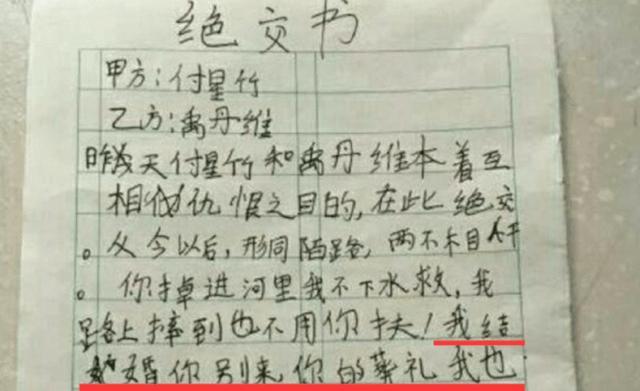 绝交书
甲方:付星竹
乙方:禹丹维
昨天付星竹和禹丹维本着互
相仇恨之目的,在此绝交
。从今以后,形同陌路,两不相干
。你掉进河里我不下水救,我
路上摔到也不用你扶!我结
婚你别来你的葬礼我也